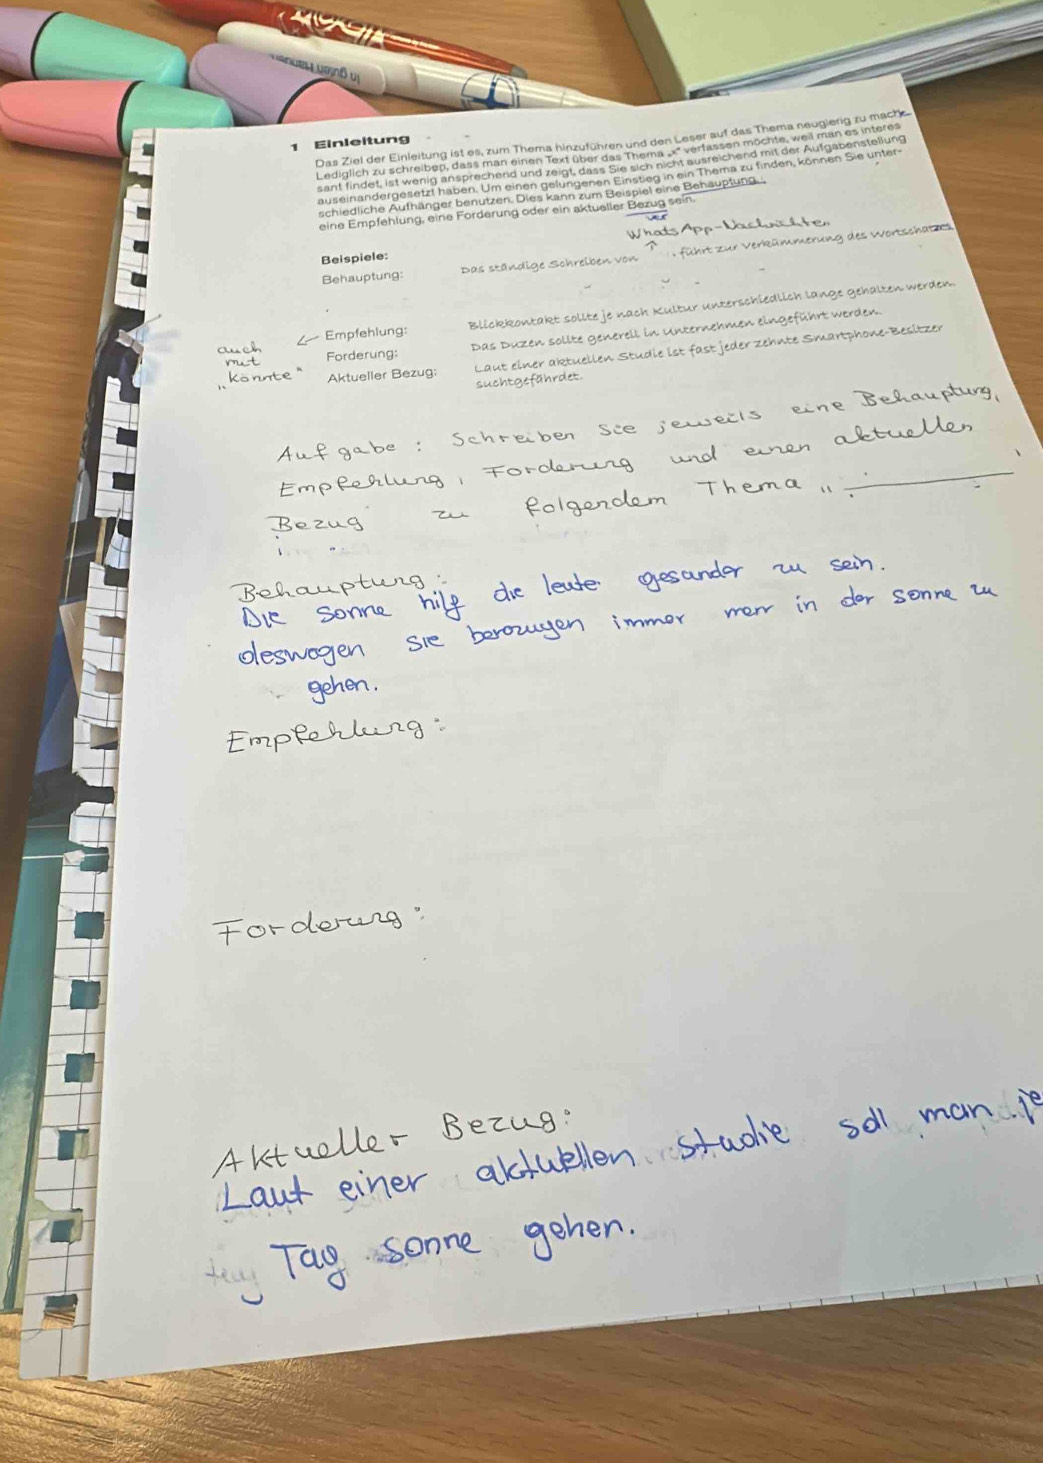 in guten Händen
1 Einleitung
Das Ziel der Einleitung ist es, zum Thema hinzuführen und den Leser auf das Thema neugierig zu mache
Lediglich zu schreiben, dass man einen Text über das Thema „x“ verfassen möchte, weil man es interes
sant findet, ist wenig ansprechend und zeigt, dass Sie sich nicht ausreichend mit der Aufgabenstellung
auseinandergesetzt haben. Um einen gelungenen Einstieg in ein Thema zu finden, können Sie unter-
schiedliche Aufhänger benutzen. Dies kann zum Beispiel eine Behauptung,
eine Empfehlung, eine Forderung oder ein aktueller Bezug sein.
ver
WhatsApp-Nachrichten
Beispiele:
Behauptung: Das ständige Schreiben von , führt zur Verkümmerung des Wortschatzes
Empfehlung: Blickkontakt sollte je nach Kultur unterschiedlich lange gehalten werden.
auch
mit
„könnte“
Forderung: Das Duzen sollte generell in Unternehmen eingeführt werden.
Aktueller Bezug: Laut einer aktuellen Studie ist fast jeder zehnte Smartphone-Besitzer
suchtgefährdet.
Aufgabe: Schreiben Sie jeweils eine Behauptung,
Empfehlung, Forderung und einen aktuellen
Bezug zu folgendem Thema „
Behauptung:
Die Sonne hilf die leute gesander zu sein.
deswegen sie berozugen immer merr in der sonne zu
gehen.
Empfehlung:
Forderung:
Aktueller Bezug:
Laut einer aktuellen studie soll man je
Tag sonne gehen.